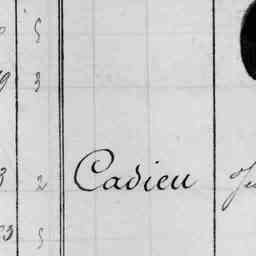 5
9 3
3 2 Cadieu
53 5